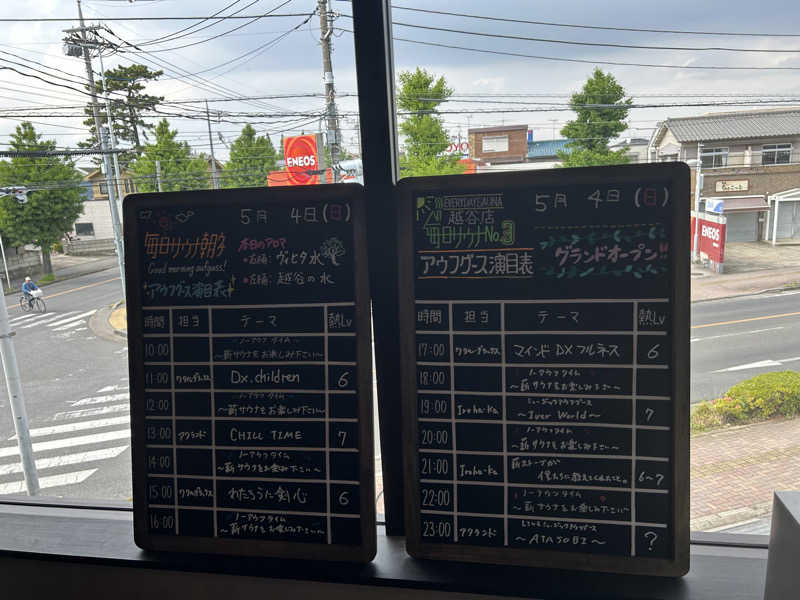 5月 4日(日)
毎日サウナ朝子
Good morning aufguss!
アウフグース演目表
本日のアロマ
右胸: ヴィヒタ水
左胸: 越谷の水
時間 担当 テーマ 熱Lv
10:00 ノーアウフタイム
〜薪サウナをお楽しみ下さい〜
11:00 ワタルデラックス Dx.children 6
12:00 ノーアウフタイム
〜薪サウナをお楽しみ下さい〜
13:00 アクランド CHILL TIME 7
14:00 ノーアウフタイム
〜薪サウナをお楽しみ下さい〜
15:00 ワタルデラックス わたろうた剣心 6
16:00 ノーアウフタイム
〜薪サウナをお楽しみ下さい〜
EVERYDAYSAUNA
越谷店
毎日サウナNo.3
アウフグース演目表
5月 4日(日)
グランドオープン!!
時間 担当 テーマ 熱Lv
17:00 ワタルデラックス マインドDXフルネス 6
18:00 ノーアウフタイム
〜薪サウナをお楽しみ下さい〜
19:00 Iroha-Ka ミュージックアウフグース
〜Iver World〜 7
20:00 ノーアウフタイム
〜薪サウナをお楽しみ下さい〜
21:00 Iroha-Ka 薪ストーブが
僕たちに教えてくれたこと。 6〜7
22:00 ノーアウフタイム
〜薪サウナをお楽しみ下さい〜
23:00 アクランド ミュージックアウフグース
〜ATASOBI〜 ?
ENEOS
ENEOS